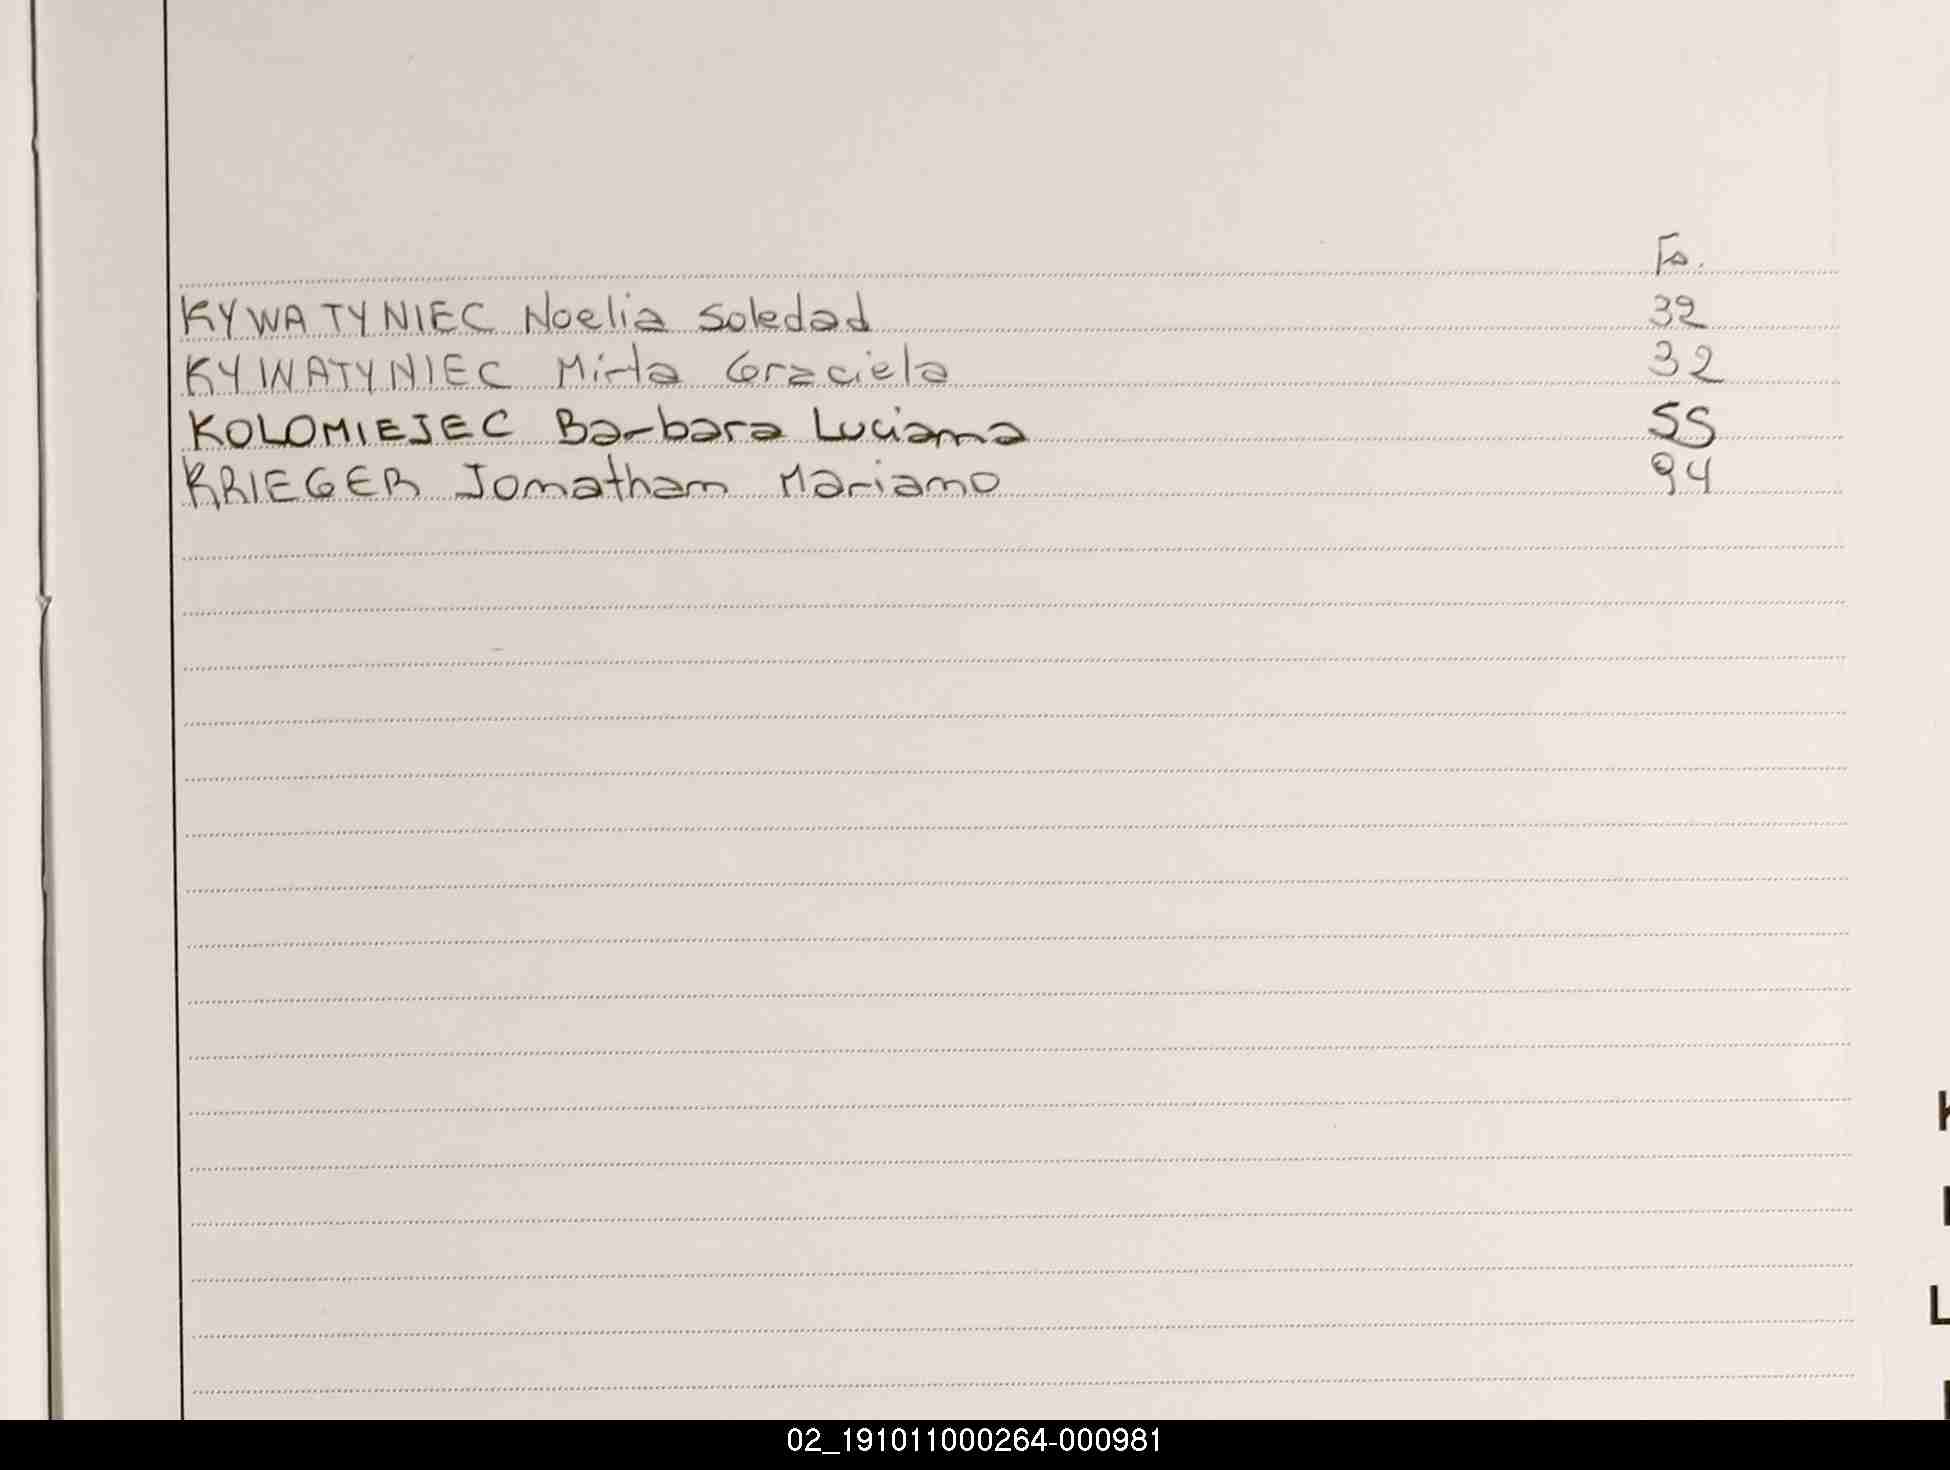 Fo.
KYWATYNIEC Noelia Soledad 32
KYWATYNIEC Mirta Graciela 32
KOLOMIEJEC Barbara Luciana 55
KRIEGER Jonathan Mariano 94
K
L
02_191011000264-000981